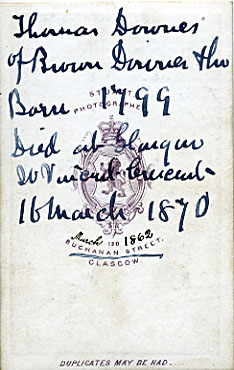 Thomas Downes
of Brown Downes & Co
Born 1799
STUART
PHOTOGRAPHER
Died at Glasgow
Crescent
16 March 1870
March 1862
120
BUCHANAN STREET,
GLASGOW.
DUPLICATES MAY BE HAD.